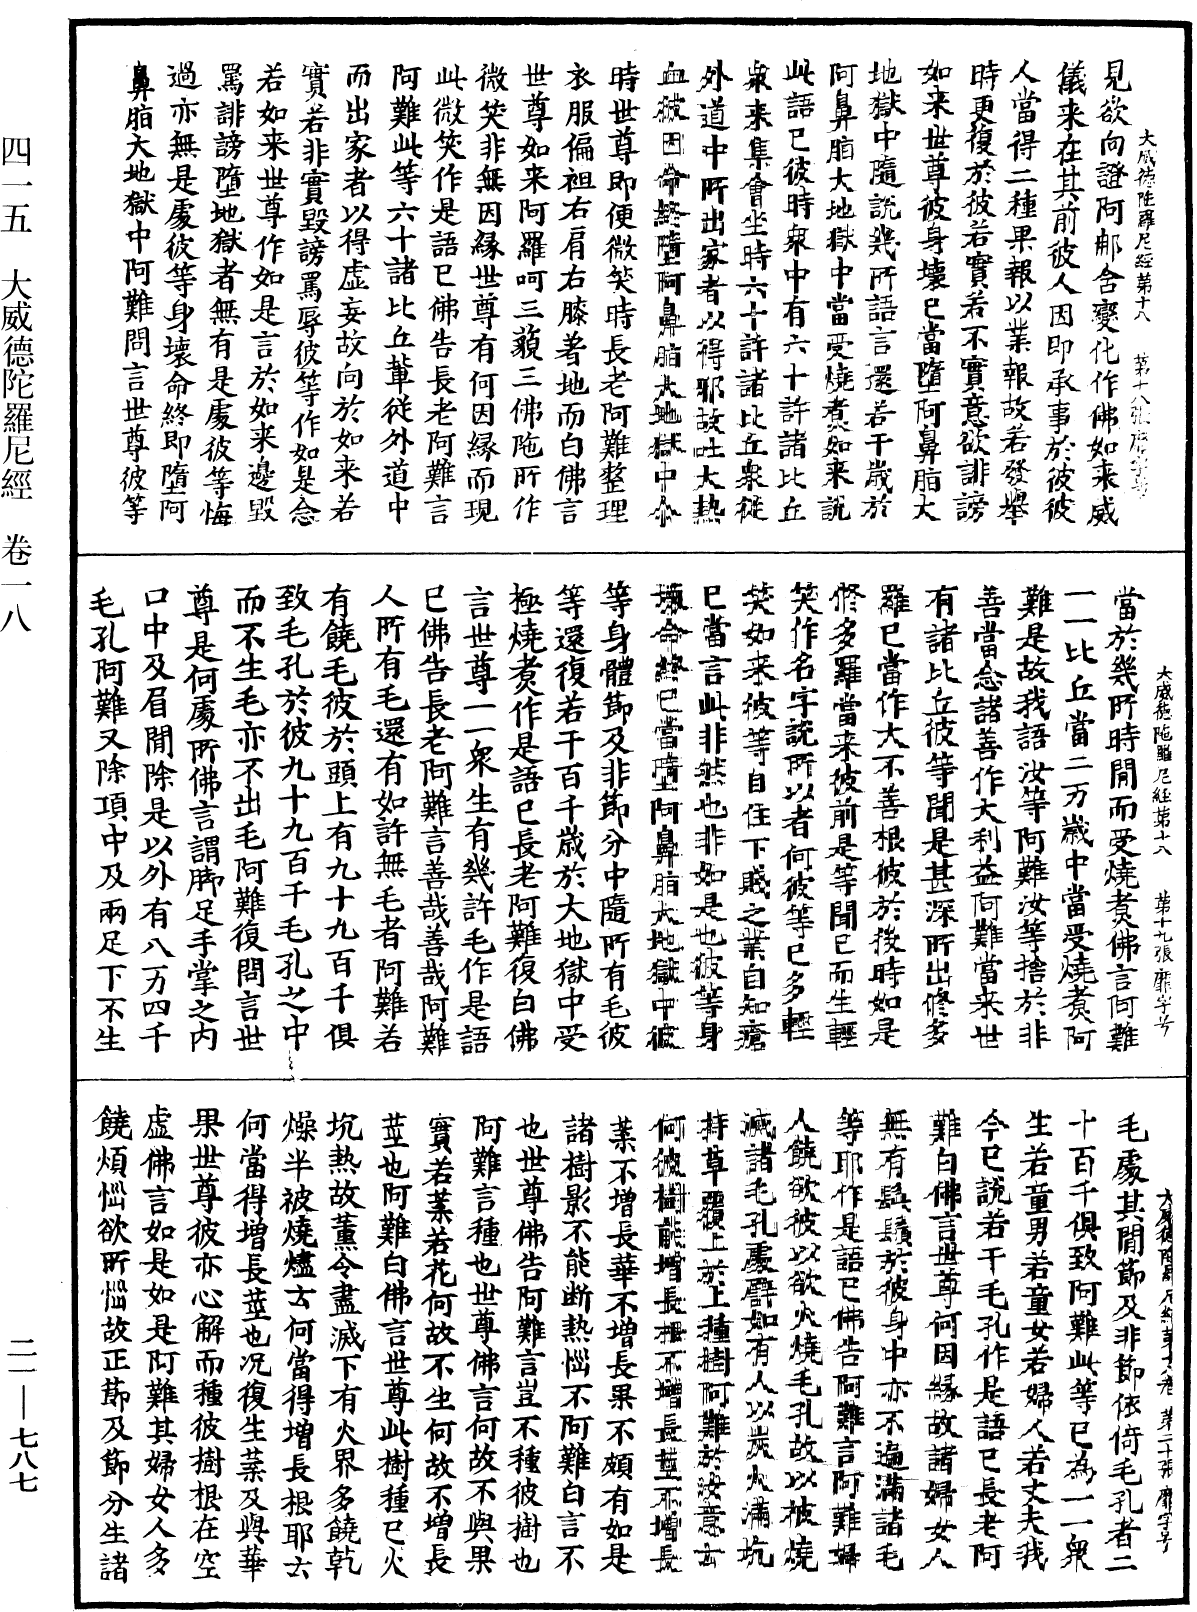 大威德陀羅尼經第十八　第十八張　靡字号
見欲向證阿那含變化作佛如来威
儀来在其前彼人因即承事於彼彼
人當得二種果報以業報故若發舉
時更復於彼若實若不實意欲誹謗
如来世尊彼身壞已當墮阿鼻脂大
地獄中隨說幾所語言還若干歲於
阿鼻脂大地獄中當受燒煑如来說
此語已彼時衆中有六十許諸比丘
衆来集會坐時六十許諸比丘衆從
外道中所出家者以得邪故吐大熱
血彼因命終墮阿鼻脂大地獄中尒
時世尊即便微笑時長老阿難整理
衣服偏袒右肩右膝著地而白佛言
世尊如来阿羅呵三藐三佛陁所作
微笑非無因緣世尊有何因緣而現
此微笑作是語已佛告長老阿難言
阿難此等六十諸比丘輩從外道中
而出家者以得虛妄故向於如来若
實若非實毀謗罵辱彼等作如是念
若如来世尊作如是言於如来邊毀
罵誹謗墮地獄者無有是處彼等悔
過亦無是處彼等身壞命終即墮阿
鼻脂大地獄中阿難問言世尊彼等
大威德陁羅尼經第十八　第十九張　靡字号
當於幾所時閒而受燒煑佛言阿難
一一比丘當二万歲中當受燒煑阿
難是故我語汝等阿難汝等捨於非
善當念諸善作大利益阿難當来世
有諸比丘彼等聞是甚深所出修多
羅已當作大不善根彼於後時如是
修多羅當来彼前是等聞已而生輕
笑作名字說所以者何彼等已多輕
笑如来彼等自住下賤之業自知瘡
已當言此非然也非如是也彼等身
壞命終已當墮阿鼻脂大地獄中彼
等身體節及非節分中隨所有毛彼
等還復若干百千歲於大地獄中受
極燒煑作是語已長老阿難復白佛
言世尊一一衆生有幾許毛作是語
已佛告長老阿難言善哉善哉阿難
人所有毛還有如許無毛者阿難若
有饒毛彼於頭上有九十九百千俱
致毛孔於彼九十九百千毛孔之中
而不生毛亦不出毛阿難復問言世
尊是何處所佛言謂脚足手掌之内
口中及眉閒除是以外有八万四千
毛孔阿難又除項中及兩足下不生
大威德陁羅尼經第十八卷　第二十張　靡字号
毛處其閒節及非節依倚毛孔者二
十百千俱致阿難此等已為一一衆
生若童男若童女若婦人若丈夫我
今已說若干毛孔作是語已長老阿
難白佛言世尊何因緣故諸婦女人
無有髭鬚於彼身中亦不遍滿諸毛
等耶作是語已佛告阿難言阿難婦
人饒欲彼以欲火燒毛孔故以被燒
滅諸毛孔處譬如有人以炭火滿坑
持草覆上於上種樹阿難於汝意云
何彼樹能增長根不增長莖不增長
葉不增長華不增長果不頗有如是
諸樹影不能断熱惱不阿難白言不
也世尊佛告阿難言豈不種彼樹也
阿難言種也世尊佛言何故不與果
實若葉若花何故不生何故不增長
莖也阿難白佛言世尊此樹種已火
坑熱故薰令盡滅下有火界多饒乾
燥半被燒爐去何當得增長根耶云
何當得增長莖也況復生葉及與華
果世尊彼亦心解而種彼樹根在空
虛佛言如是如是阿難其婦女人多
饒煩惱欲所惱故正節及節分生諸
四一五　大威德陀羅尼經　卷一八
二一—七八七